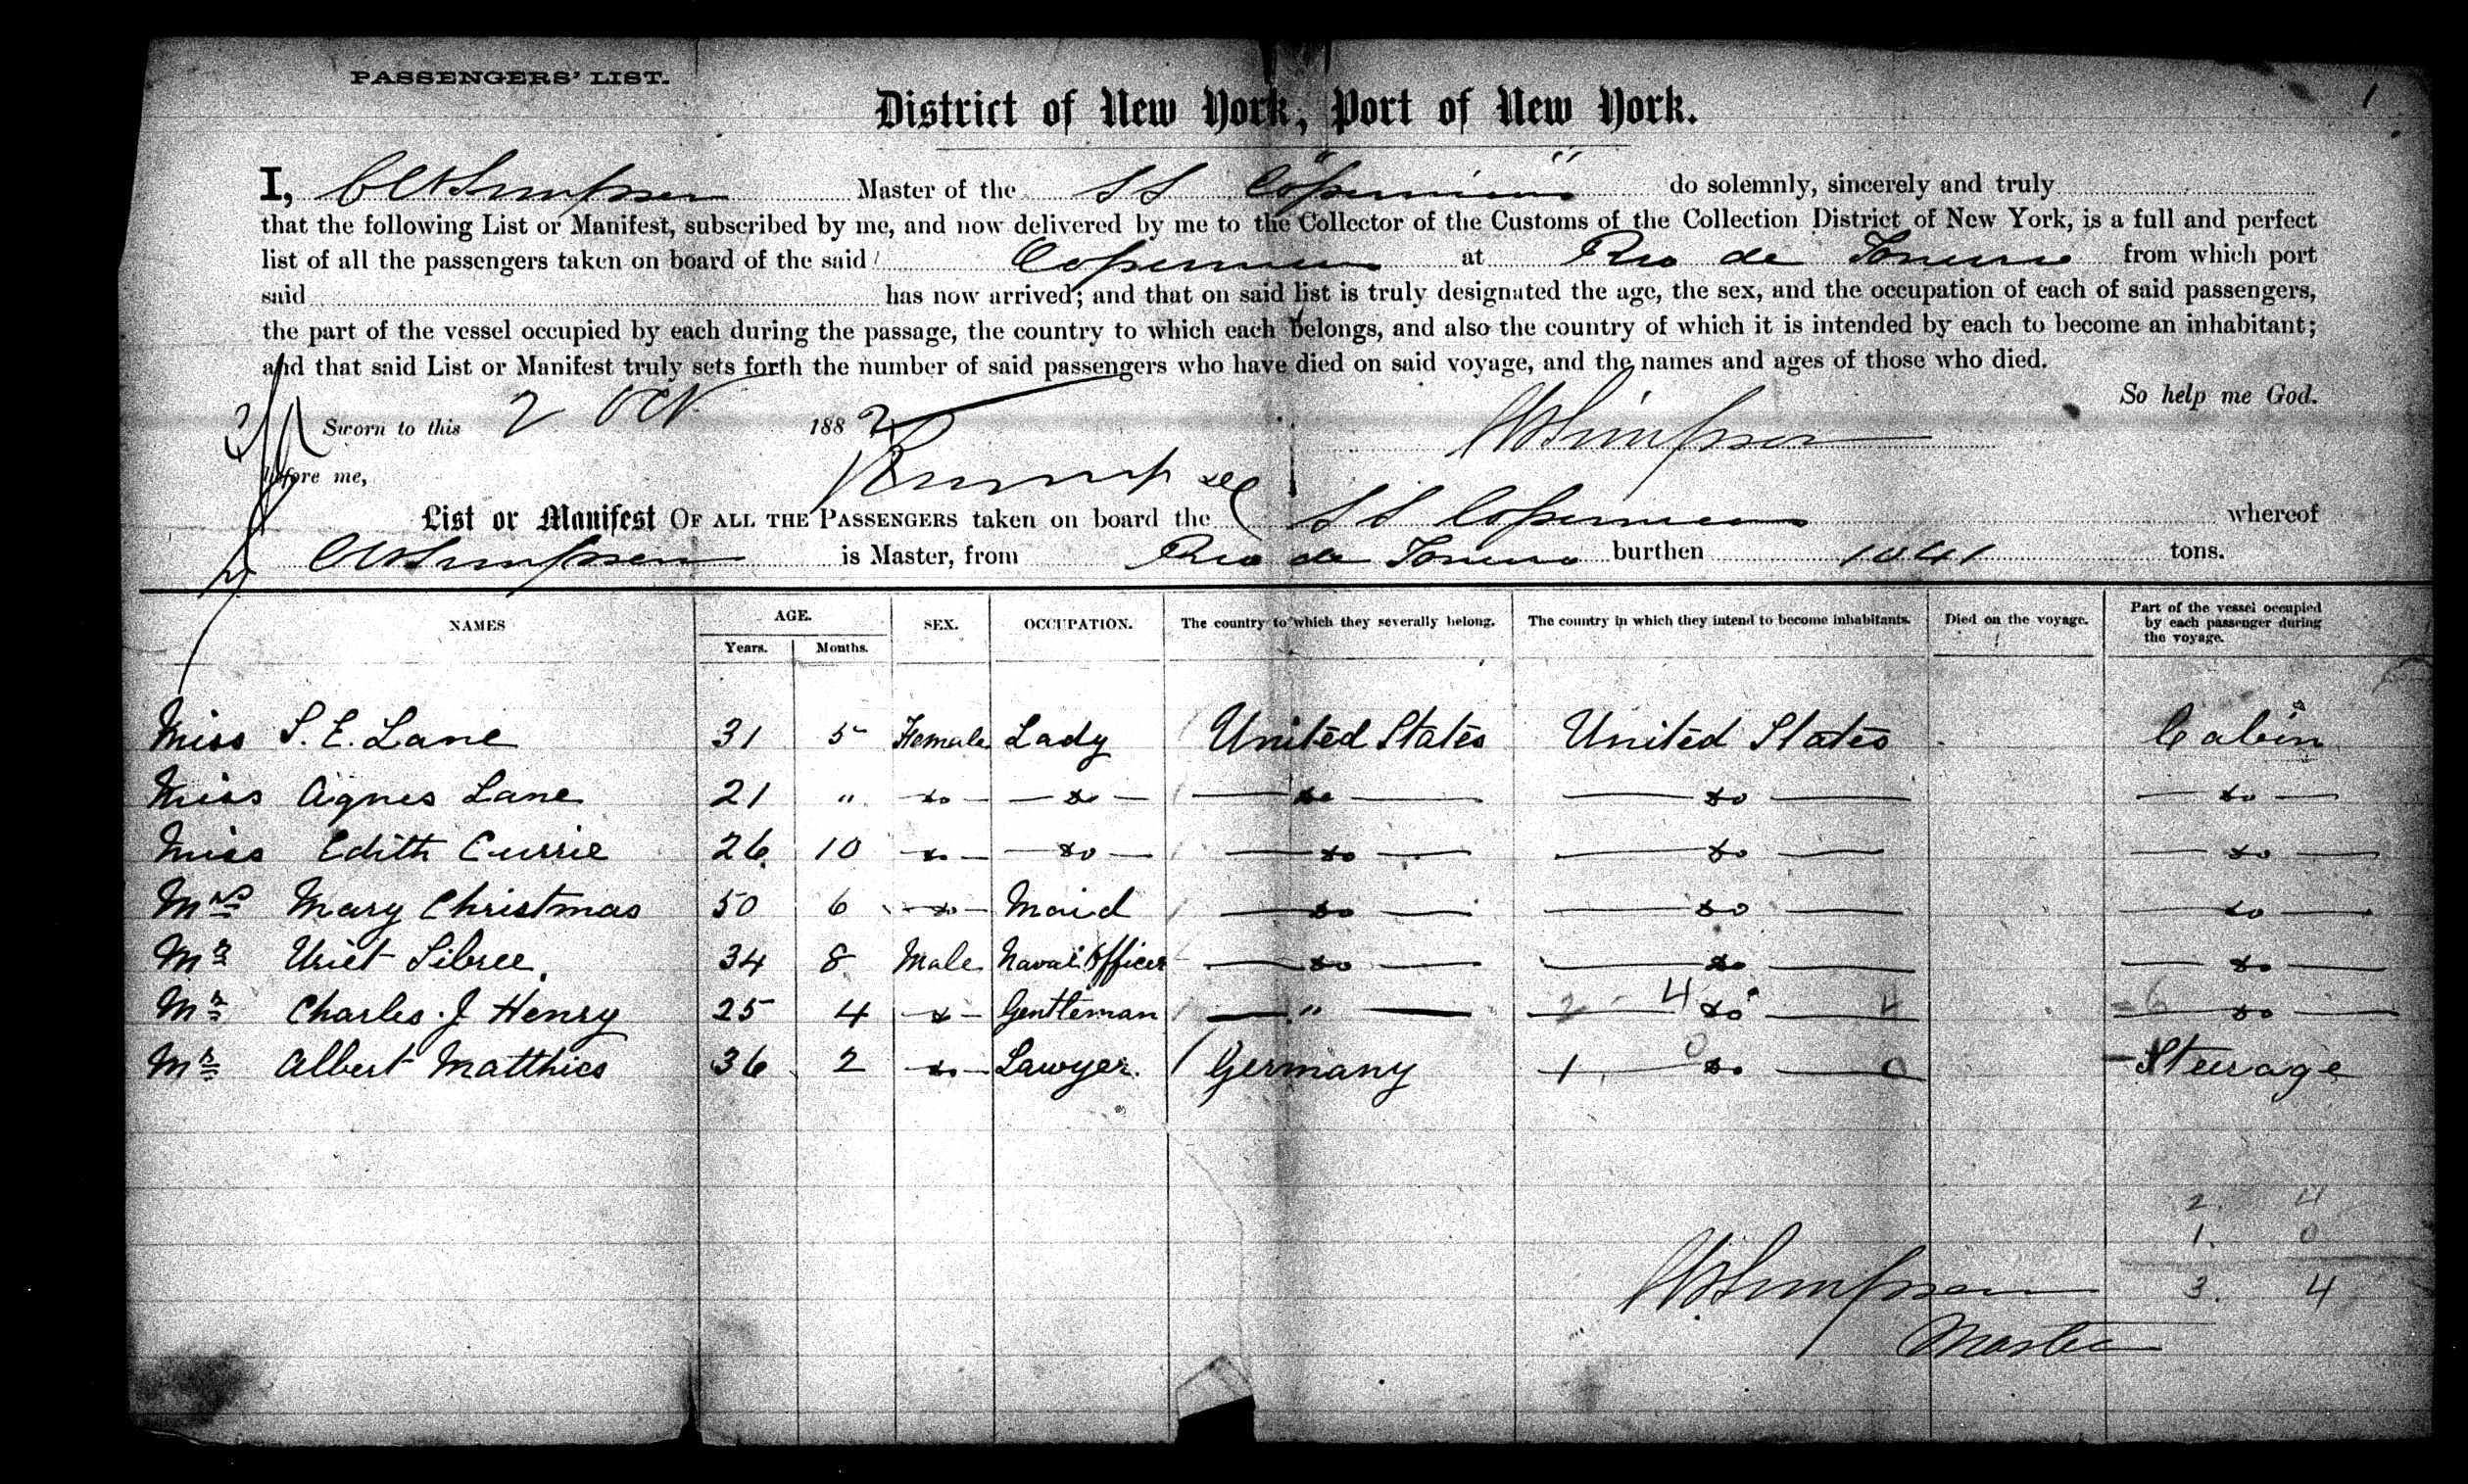 PASSENGERS' LIST.
1
District of New York, Port of New York.
I, Simpson Master of the SS "Copernicus" do solemnly, sincerely and truly
that the following List or Manifest, subscribed by me, and now delivered by me to the Collector of the Customs of the Collection District of New York, is a full and perfect
list of all the passengers taken on board of the said Copernicus at Rio de Janeiro from which port
said has now arrived; and that on said list is truly designated the age, the sex, and the occupation of each of said passengers,
the part of the vessel occupied by each during the passage, the country to which each belongs, and also the country of which it is intended by each to become an inhabitant;
and that said List or Manifest truly sets forth the number of said passengers who have died on said voyage, and the names and ages of those who died.
So help me God.
Sworn to this 2 Oct 1882 Simpson
before me,
List or Manifest OF ALL THE PASSENGERS taken on board the SS Copernicus whereof
Simpson is Master, from Rio de Janeiro burthen 1041 tons.
NAMES AGE. Years. Months. SEX. OCCUPATION. The country to which they severally belong. The country in which they intend to become inhabitants. Died on the voyage. Part of the vessel occupied by each passenger during the voyage.
Miss S. E. Lane 31 5 Female Lady United States United States Cabin
Miss Agnes Lane 21 " do do do do do
Miss Edith Currie 26 10 do do do do do
Mrs Mary Christmas 50 6 do Maid do do do
Mr Sibree 34 8 Male Naval Officer do do do
Mr Charles J Henry 25 4 do Gentleman " 2 4 do 4 6 do
Mr Albert Matthies 36 2 do Lawyer. Germany 1 0 do 0 Steerage
2. 4
1. 0
3. 4
Simpson
Master